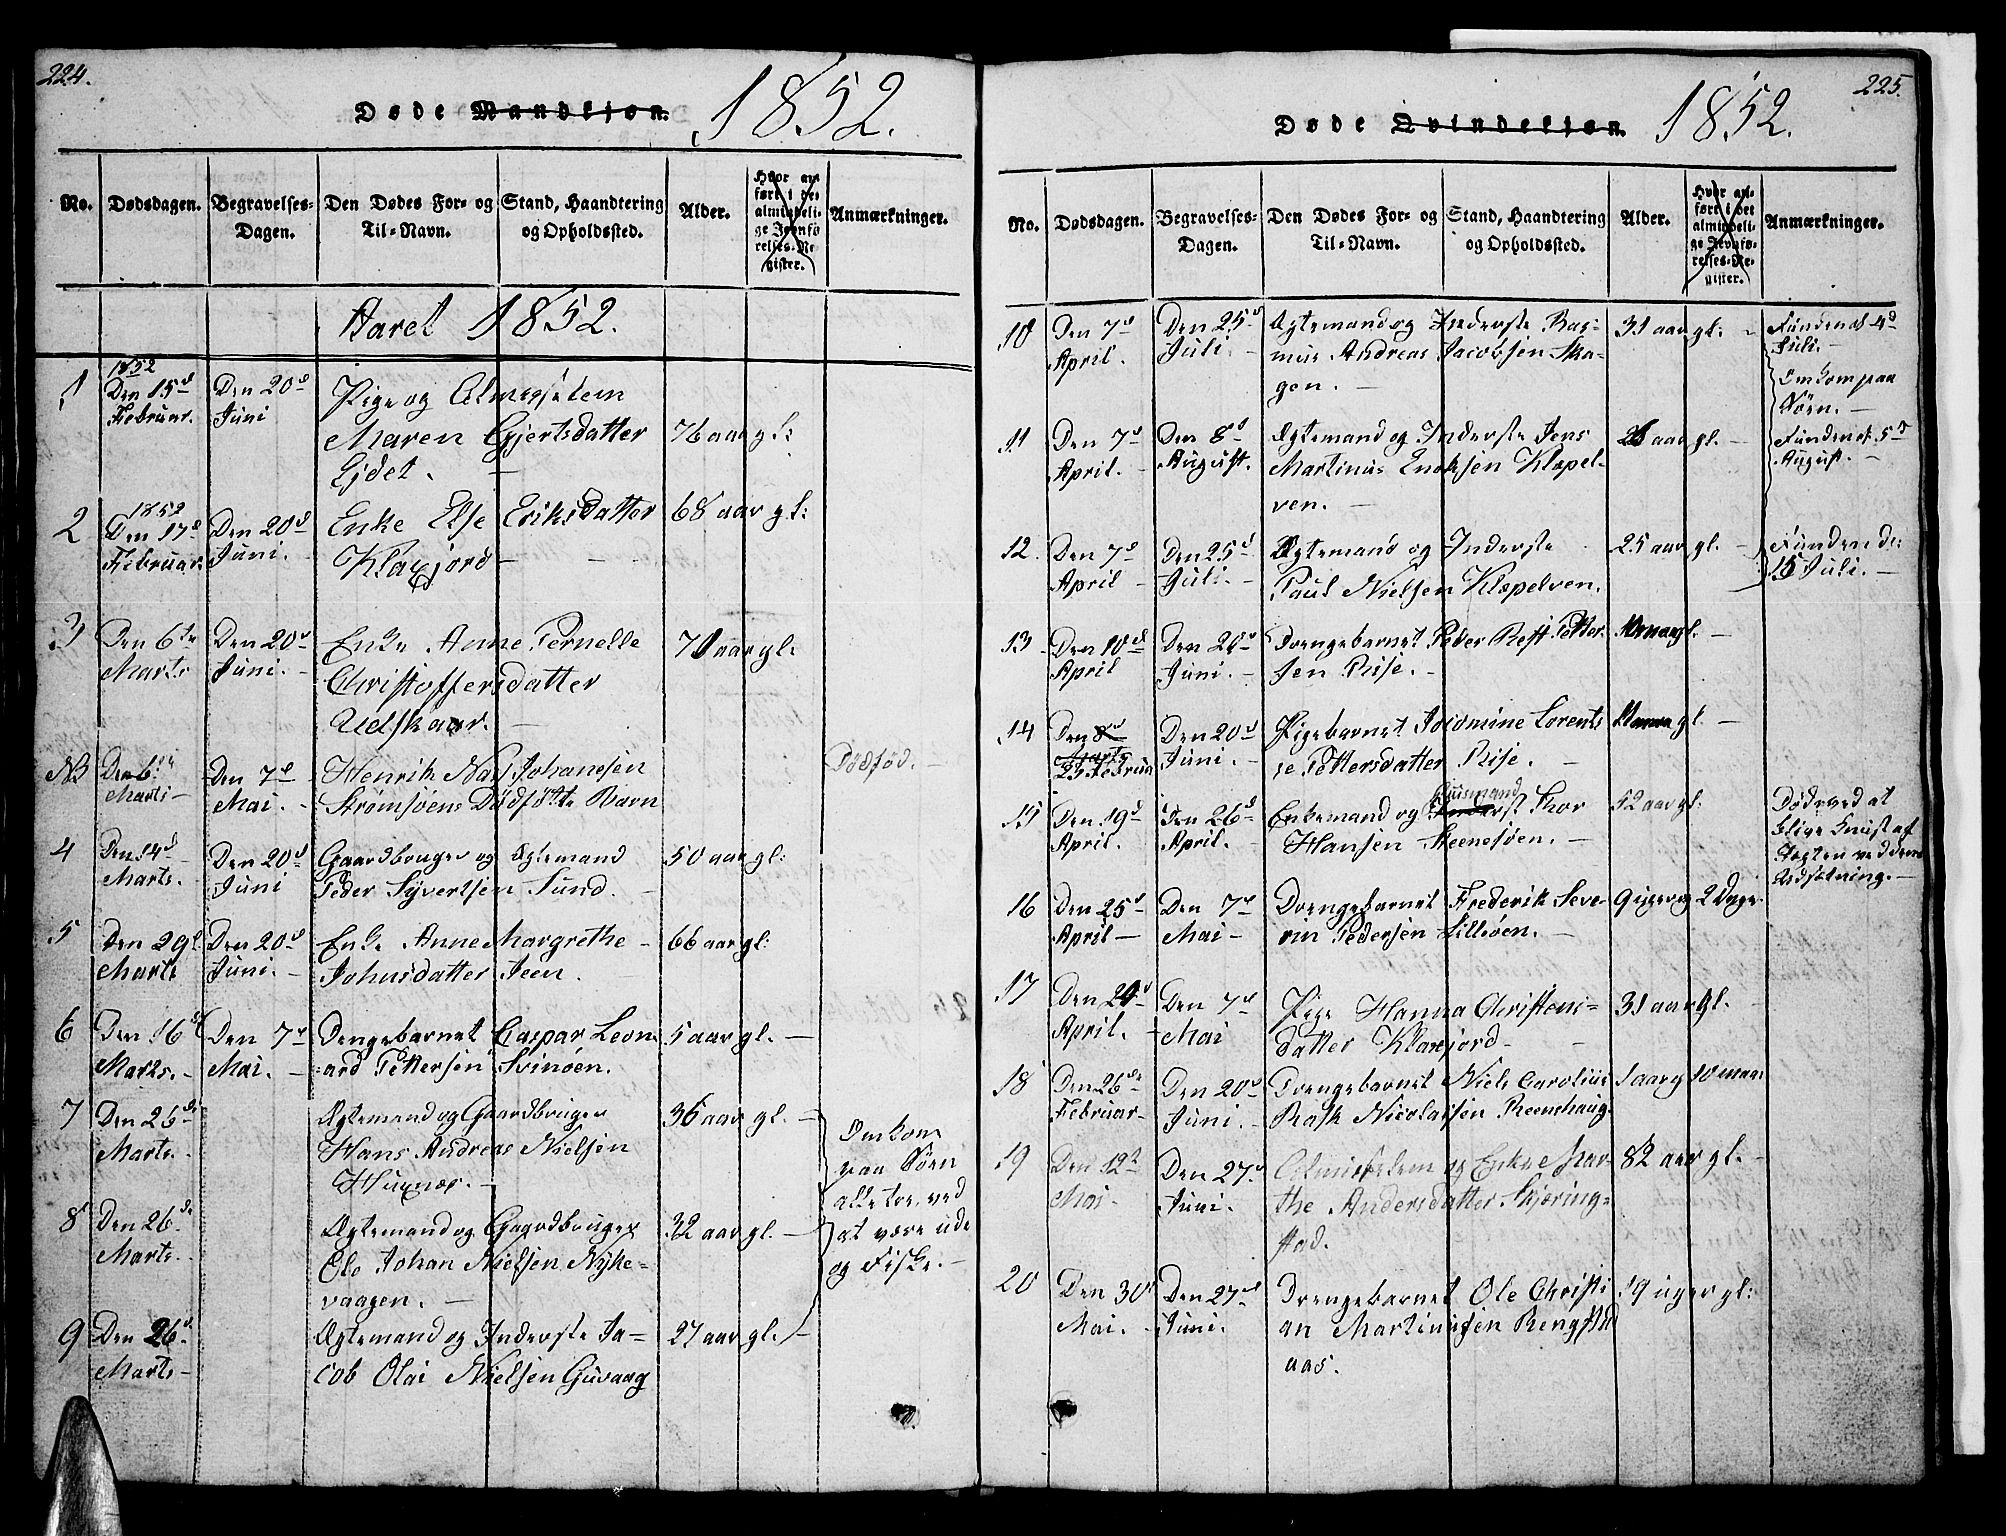 224.
Døde Mandkjøn. 1852.
No.
Dødsdagen.
Begravelses-
Dagen.
Den Dødes For- og
Til-Navn.
Stand, Haandtering
og Opholdssted.
Alder.
Hvor an-
ført i det
almindeli-
ge Jevnfø-
relses-Re-
gister.
Anmærkninger.
Aaret 1852.
1
1852
Den 15d
Februar.
Den 20d
Juni
Pige og Almisselem
Maren Gjertsdatter
Ejdet.
76 aar gl:
2
1852
Den 17d
Februar.
Den 20d
Juni.
Enke Else Eriksdatter
Klaxjord
68 aar gl:
3
Den 6te
Marts
Den 20d
Juni.
Enke Anne Pernelle
Christoffersdatter
Uelskaar.
71 aar gl.
NB
Den 6te
Marts
Den 7d
Mai.
Henrik Johansen
Strømsøens Dødfødte Barn
Dødfød.
4
Den 14d
Marts.
Den 20d
Juni
Gaardbruger og Ægtemand
Peder Syvertsen Sund.
50 aar gl:
5
Den 29d
Marts
Den 20d
Juni.
Enke Anne Margrethe
Johnsdatter Steen.
66 aar gl:
6
Den 16d
Marts.
Den 7d
Mai.
Drengebarnet Caspar Leon-
ard Pettersen Svinøen.
5 aar gl.
7
Den 26de
Marts.
Ægtemand og Gaardbruger
Hans Andreas Nielsen
Huxnæs.
36 aar gl.
Omkom
paa Søen
alle tre, ved
at være ude
og Fiske.
8
Den 26de
Marts.
Ægtemand og Gaardbruger
Ole Johan Nielsen Nyke-
vaagen.
32 aar gl.
9
Den 26d.
Marts
Ægtemand og Inderste Ja-
cob Olai Nielsen Guvaag
27 aar gl.
225.
Døde Qvindekjøn. 1852.
No.
Dødsdagen.
Begravelses-
Dagen.
Den Dødes For- og
Til-Navn.
Stand, Haandtering
og Opholdssted.
Alder.
Hvor an-
ført i det
almindeli-
ge Jevnfø-
relses-Re-
gister.
Anmærkninger.
10
Den 7d
April.
Den 25d
Juli.
Ægtemand og Inderste Ras-
mus Andreas Jacobsen Ska-
gen.
31 aar gl:
Funden d. 4d
Juli.
Omkom paa
Søen.
11
Den 7d
April.
Den 8d
August.
Ægtemand og Inderste Jens
Martinus Enoksen Klæpel-
ven.
aar gl.
Funden d. 5d
August.
12.
Den 7d
April
Den 25d
Juli.
Ægtemand og Inderste
Paul Nielsen Klæpelven.
25 aar gl.
Funden de:
15 Juli.
13
Den 10d
April
Den 20d
Juni.
Drengebarnet Peder Rest Petter-
sen Rise.
14
Den 8d
Marts
25 Februar
Den 20d
Juni.
Pigebarnet Jacomine Lorent-
se Pettersdatter Rise.
15
Den 19d
April.
Den 26d
April.
Huusmand
Enkemand og Inderst Thor
Hansen Steenesøen.
52 aar gl:
Døde ved at
blive knust af
ved dens
Udsætning.
16
Den 25d
April
Den 7d
Mai
Drengebarnet Frederik Seve-
rin Pedersen Lilleøen.
9 uger og 2 Dage
17
Den 24d
April.
Den 7d
Mai
Pige Hanna Christens-
datter Klaxjord
31 aar gl.
18
Den 26de
Februar
Den 20d
Juni.
Drengebarnet Niels Carolius
Rask Nicolaisen Reenshaug
1 aar og 10 maan
19
Den 12d
Mai.
Den 27d
Juni.
Almisselem og Enke Mar-
the Andersdatter Skjæring-
stad.
82 aar gl.
20
Den 30d
Mai.
Den 27d
Juni.
Drengebarnet Ole Christi-
an Martinussen Reng
aas.
19 uger gl: